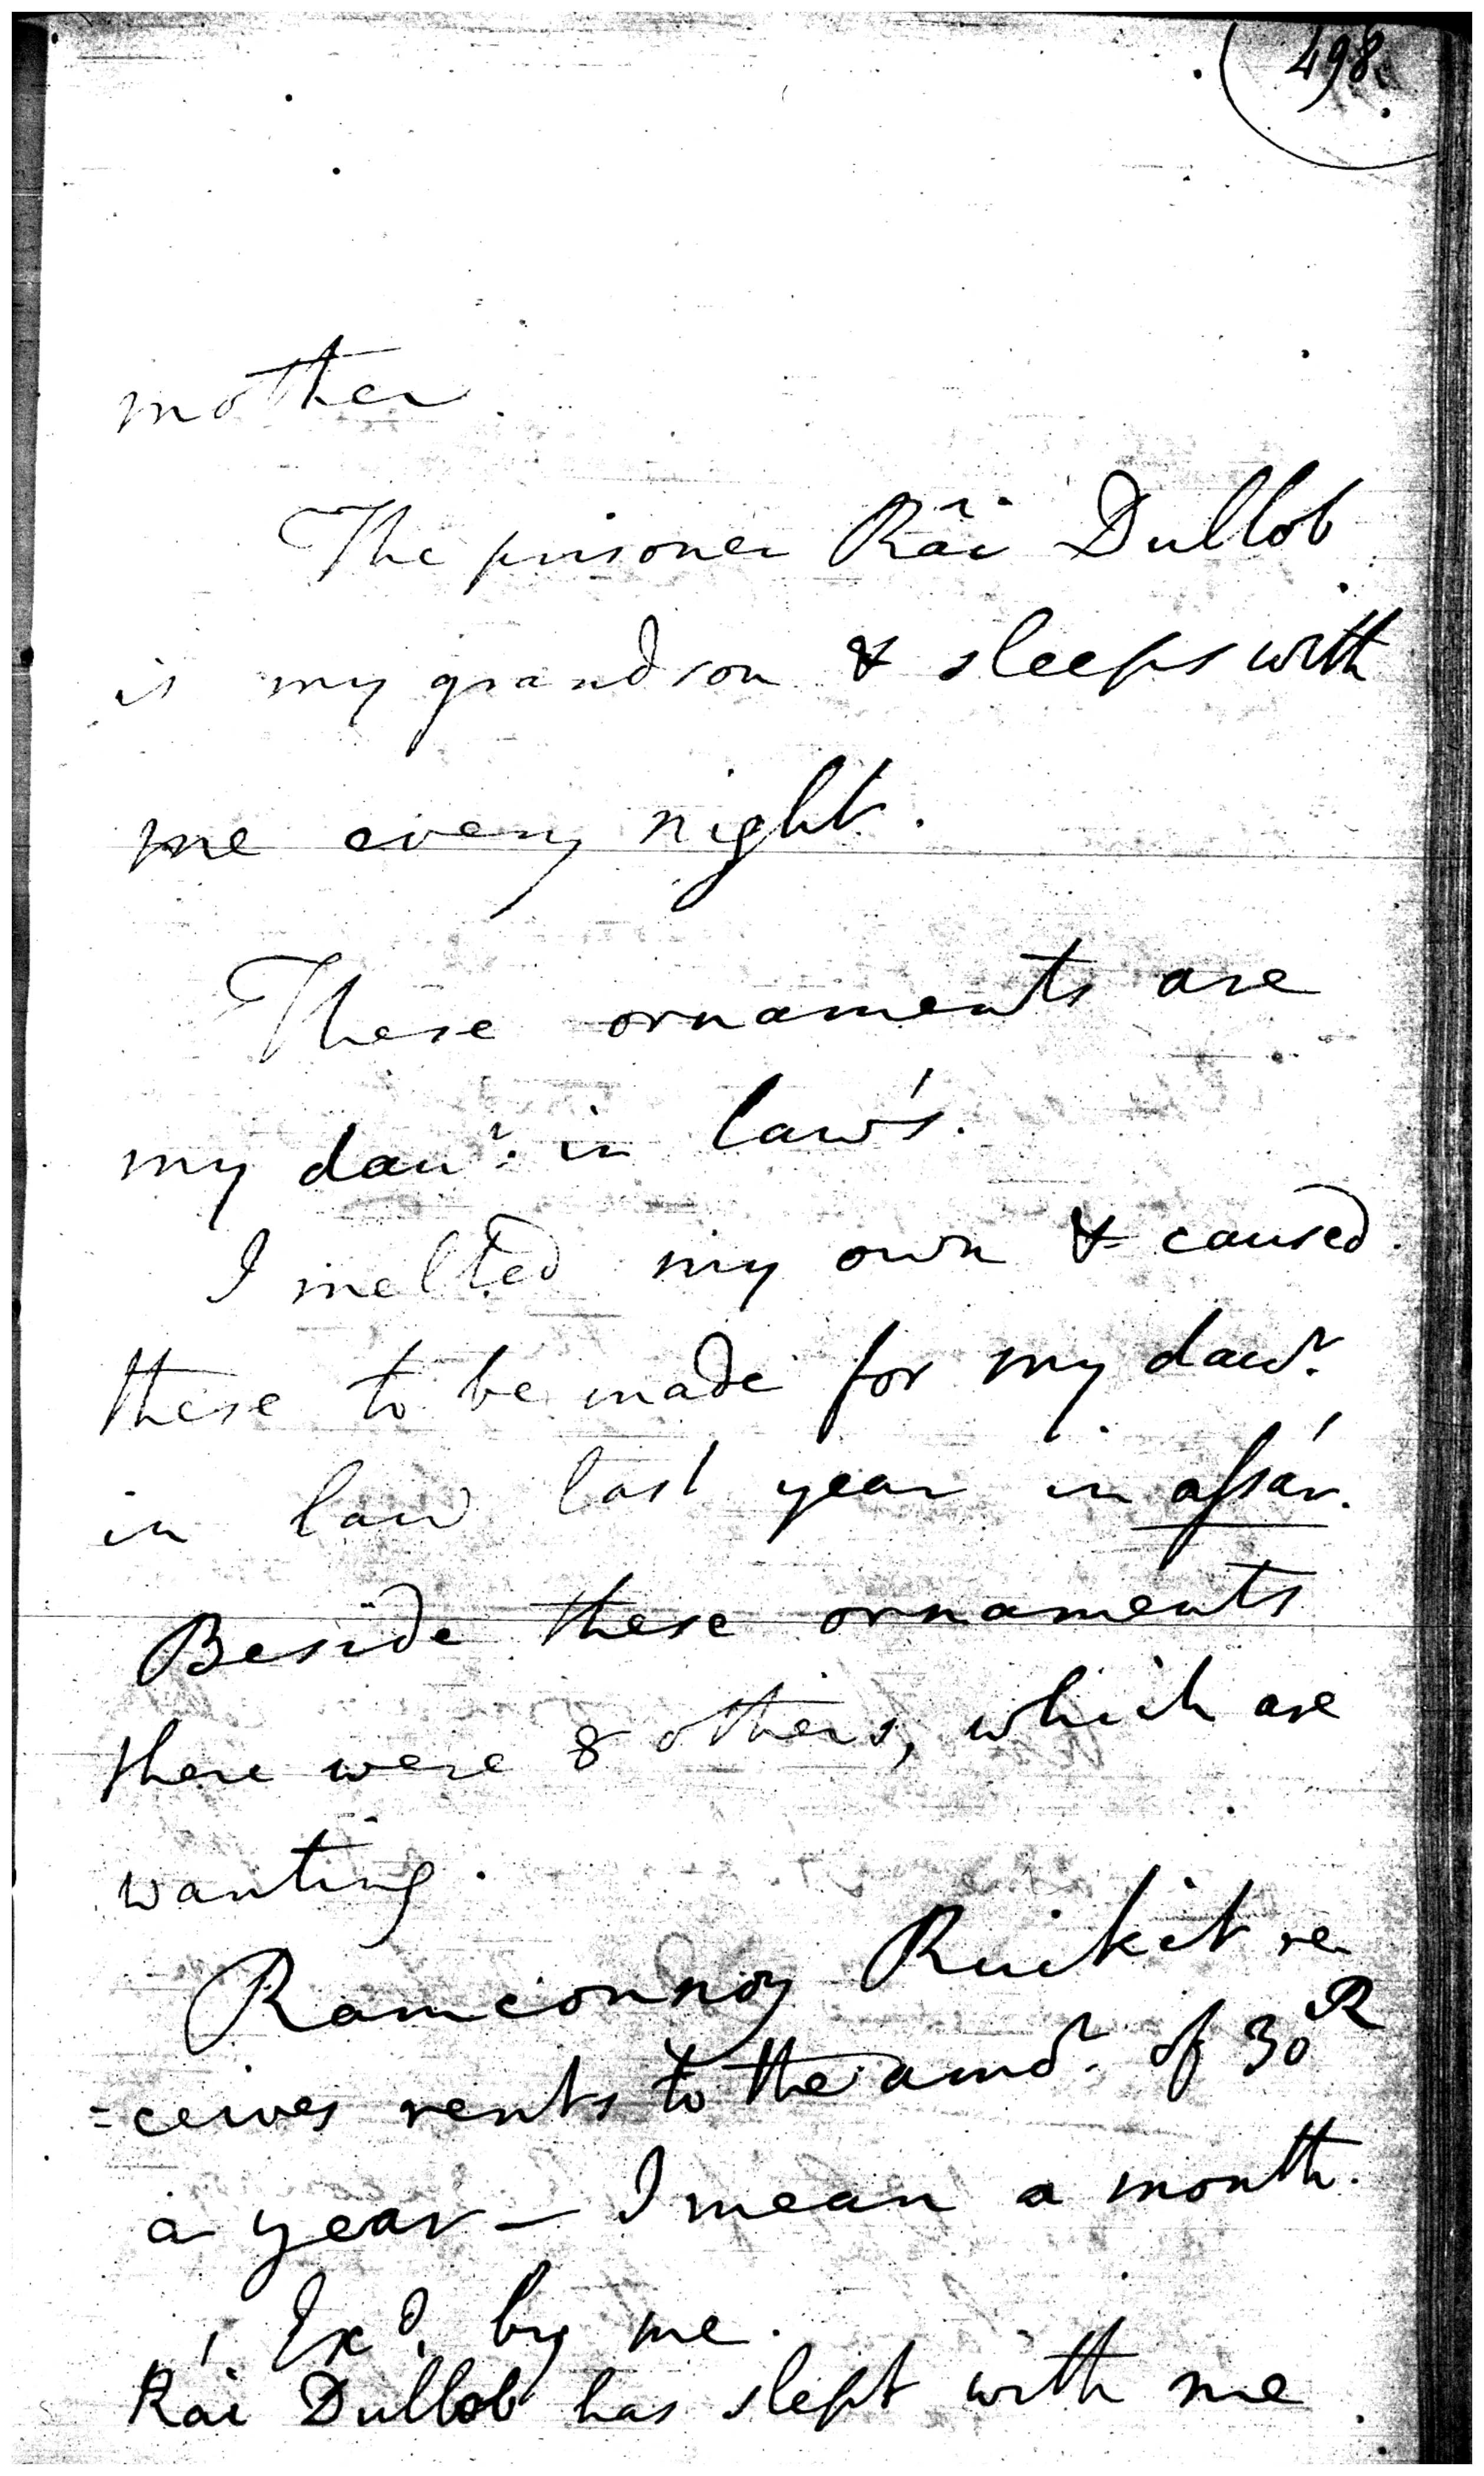 498.
mother.
The prisoner Râi Dullob
is my grandson & sleeps with
me every night.
These ornaments are
my dau.r in law's.
I melted my own & caused
these to be made for my dau.r
in law last year in assár.
Beside these ornaments
there were 8 others, which are
wanting.
Ramconnoy Ruikit re
=ceives rents to the amo.t of 30 R
a year — I mean a month.
Ex.d by me.
Rái Dullob has slept with me